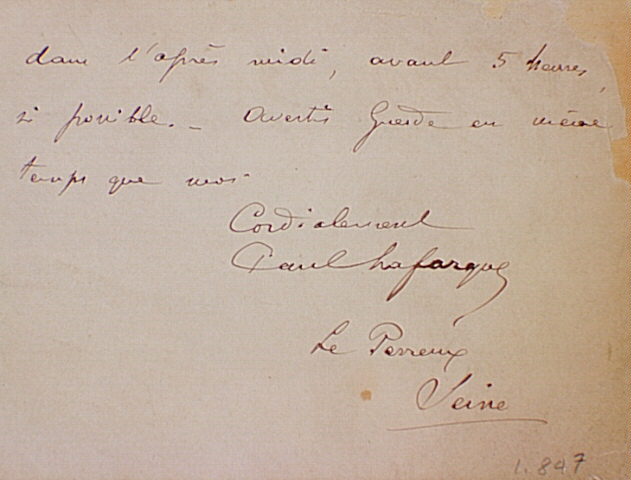 dans l'après midi, avant 5 heures,
si possible. _ Avertis Guesde en même
temps que moi
Cordialement
Paul Lafargue
Le Perreux
Seine
1.847